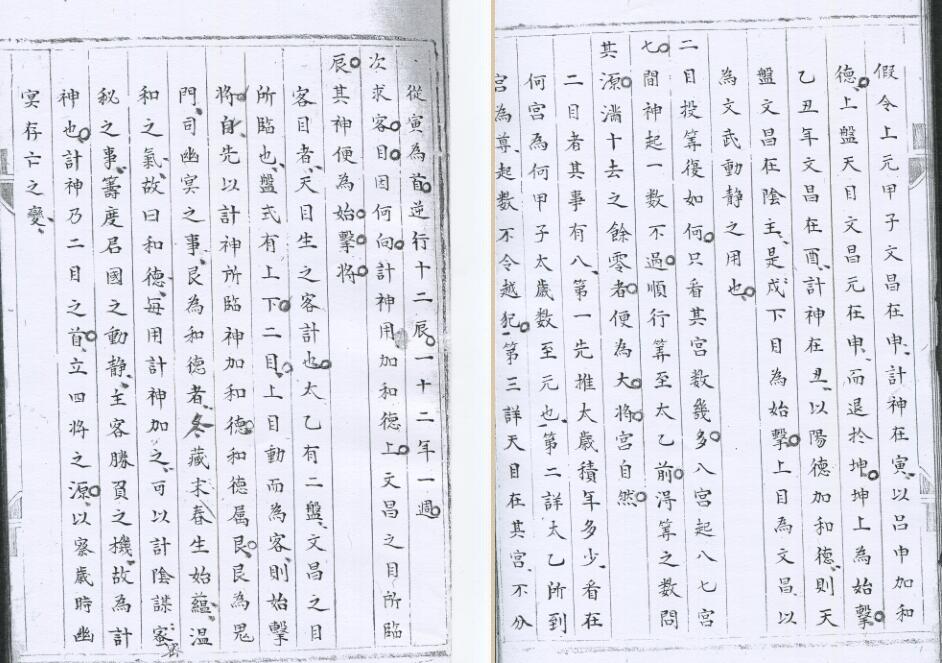 從寅為首逆行十二辰一十二年一週
次求客目因何向計神用加和德上文昌之目所臨
辰其神便為始擊將
客目者天目生之客計也太乙有二盤文昌之目
所臨也盤式有上下二目上目動而為客則始擊
將自先以計神所臨神加和德和德属艮艮為鬼
門司幽冥之事艮為和德者冬藏末春生始蘊温
和之氣故曰和德每用計神加之可以計陰謀客
秘之事籌度君國之動静主客勝負之機故為計
神也計神乃二目之首立四將之源以察歲時幽
冥存亡之變
假令上元甲子文昌在申計神在寅以吕申加和
德上盤天目文昌元在申而退於坤坤上為始擊
乙丑年文昌在酉計神在丑以陽德加和德則天
盤文昌在陰主是戌下目為始擊上目為文昌以
為文武動静之用也
二目投筭復如何只看其宮數幾多八宮起八七宮
七間神起一數不過順行筭至太乙前得筭之數問
其源滿十去之餘零者便為大將宮自然
二目者其事有八第一先推太歲積年多少看在
何宮為何甲子太歲数至元也第二詳太乙所到
宮為尊起数不令越犯第三詳天目在其宮不分